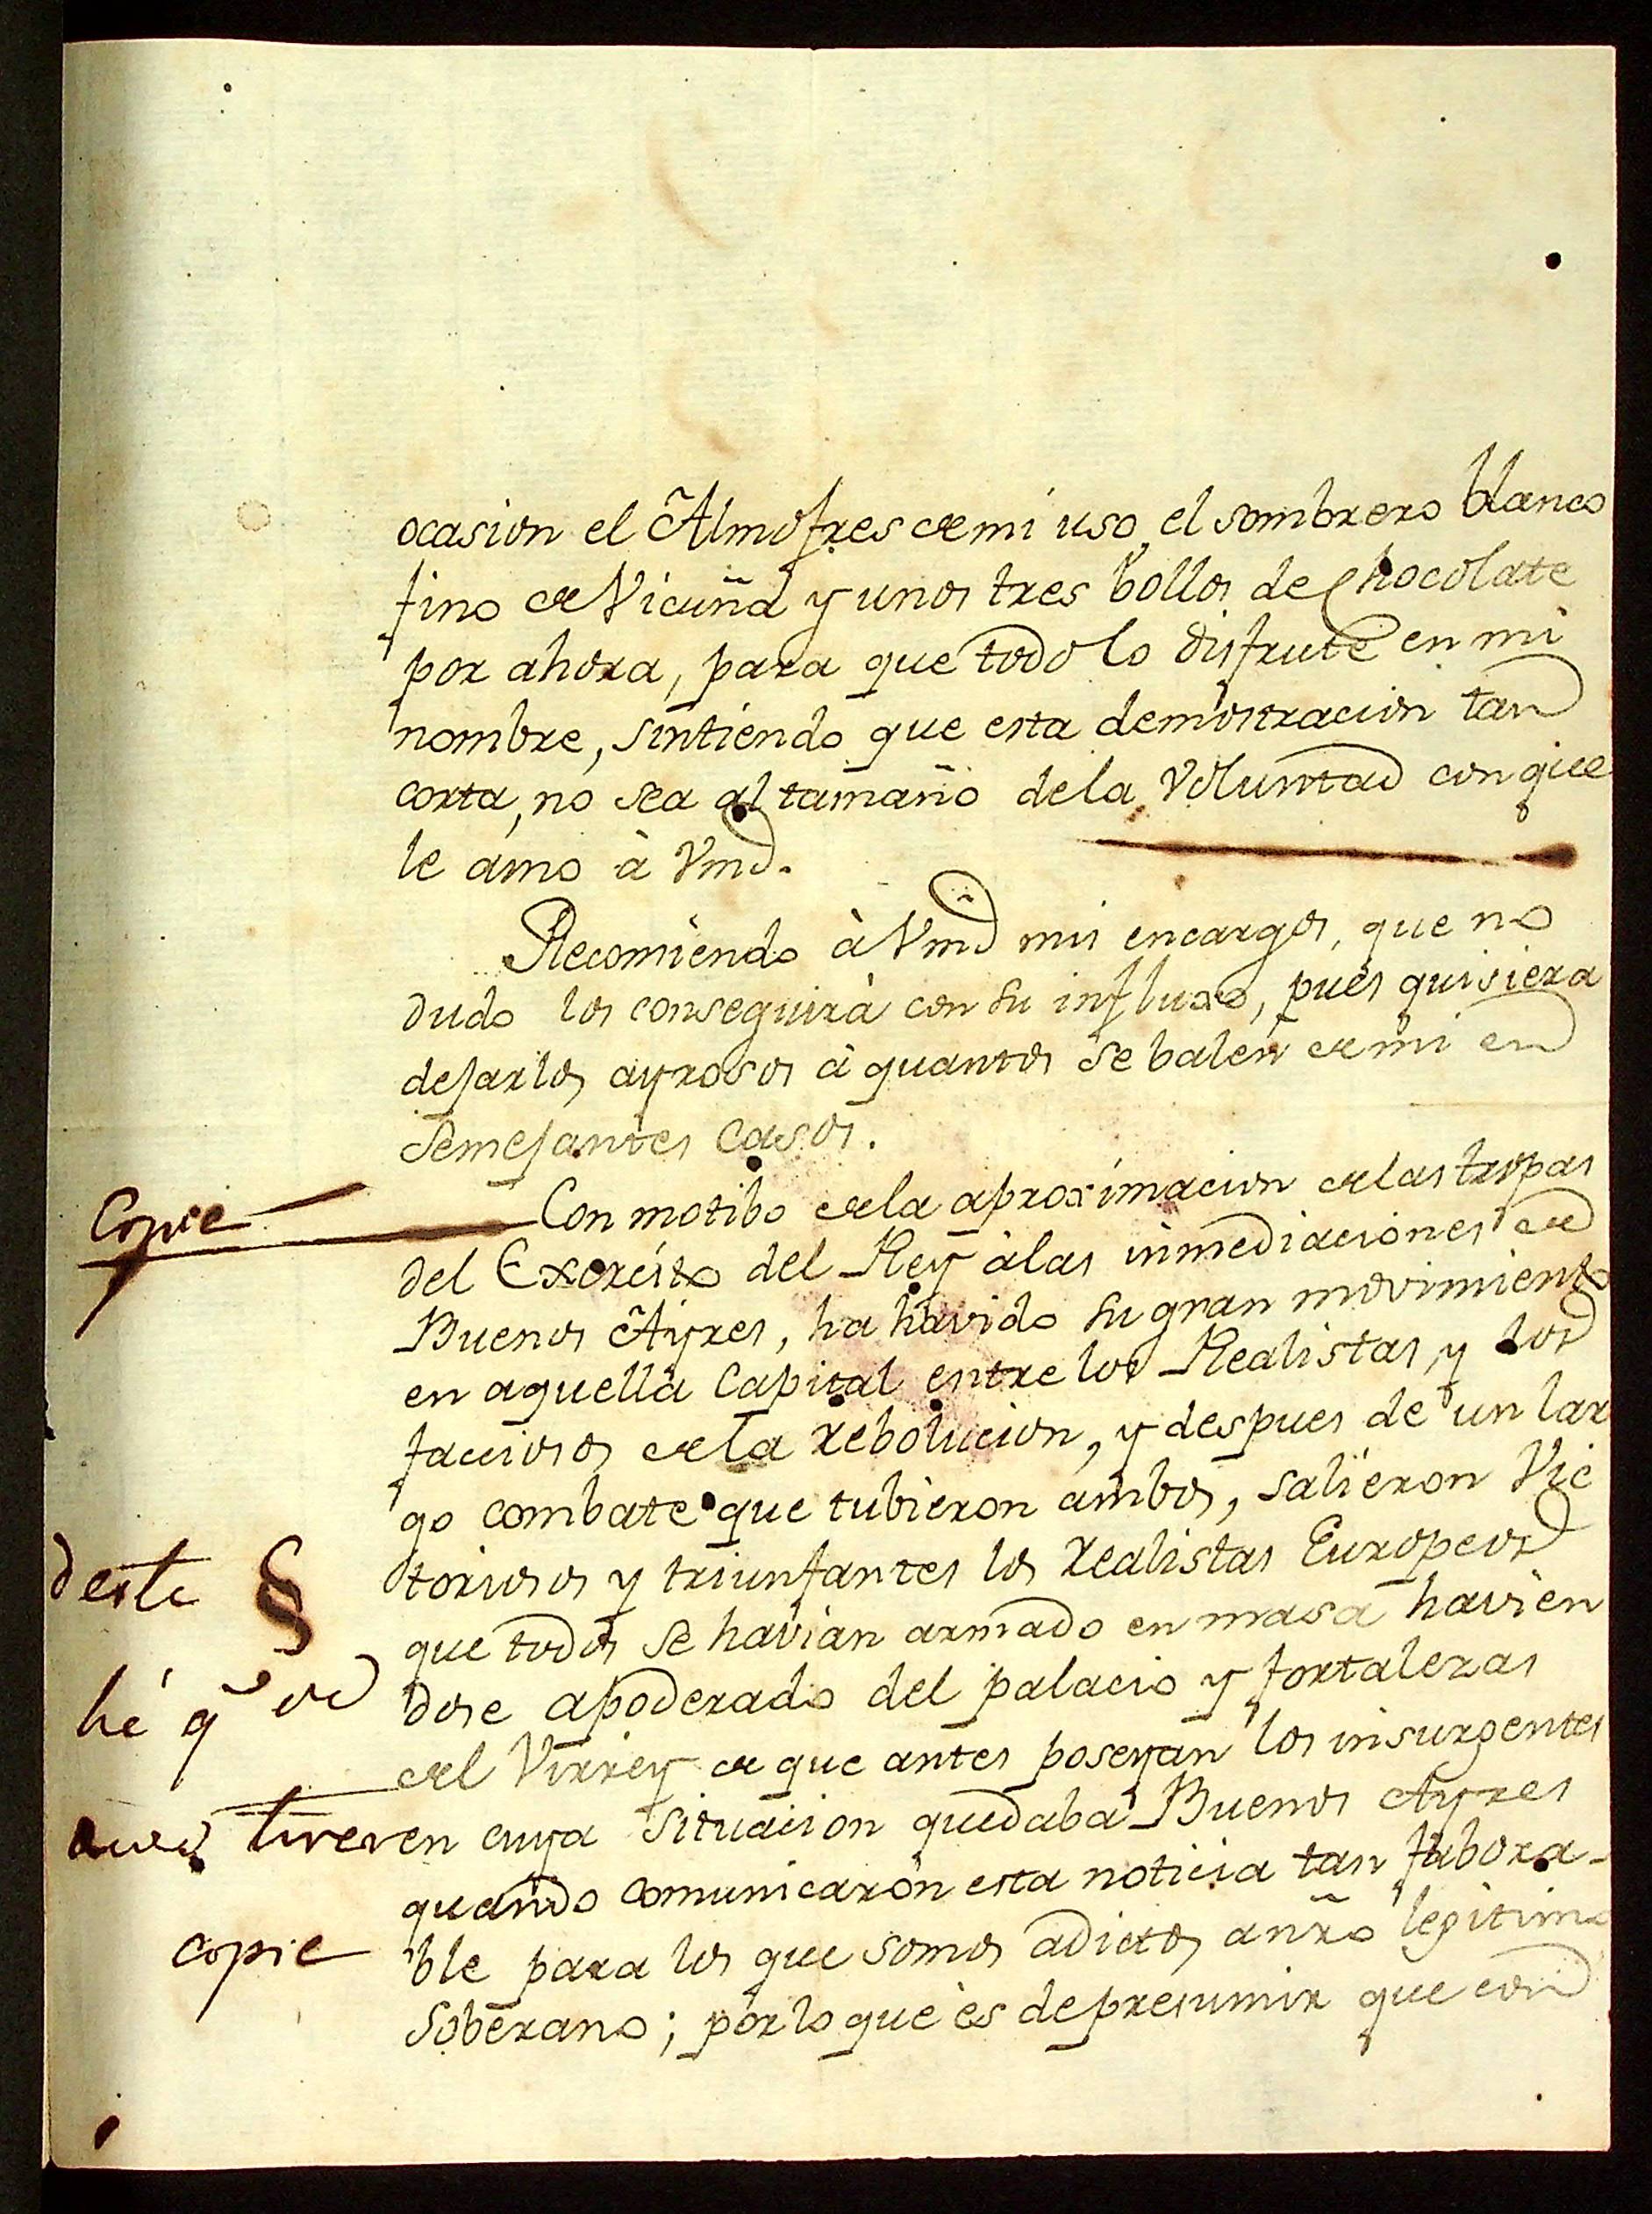 ocasion el Almofres de mi uso, el sombrero blanco
fino de Vicuña y unos tres bollos de Chocolate
por ahora, para que todo lo disfrute en mi
nombre, sintiendo que esta demostracion tan
corta, no sea al tamaño de la Voluntad con que
le amo à Vmd.
Recomiendo à Vmd mis encargos, que no
dudo los conseguirà con su influxo, pues quisiera
dejarlos ayrosos à quantos se balen de mi en
Semejantes casos.
Copie
Con motibo de la aproximacion de las tropas
del Exercito del Rey à las inmediaciones de
Buenos Ayres, ha havido su gran movimiento
en aquella Capital entre los Realistas, y los
facciosos de la rebolucion, y despues de un lar
go combate que tubieron ambos, salieron Vic
toriosos y triunfantes los Realistas Europeos
que todos se havian armado en masa havien
dose apoderado del palacio y fortalezas
del Virrey de que antes poseyan los insurgentes
en cuya situacion quedaba Buenos Ayres
quando comunicaron esta noticia tan fabora-
ble para los que somos adictos a nrô legitimo
Soberano; por lo que es de presumir que con
deste §
hé q
copie